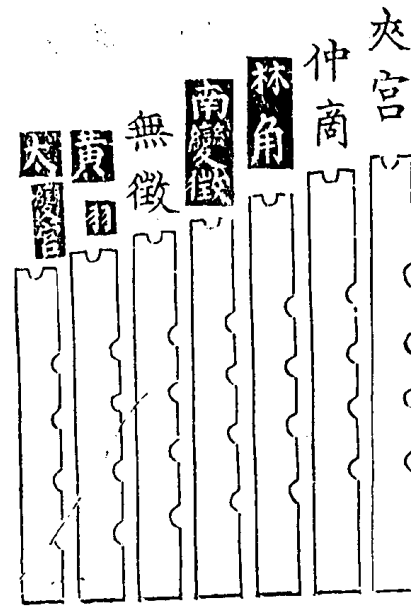 夾宮
仲商
林角
南變徵
無徵
黄羽
大變宮